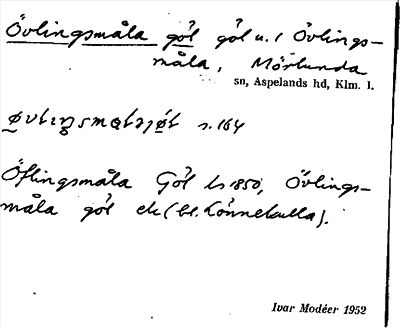 Övlingsmåla göl göl u. / Övlings-
måla, Mörlunda
sn, Aspelands hd, Klm. l.
s. 164
Öflingsmåla Göl ls 1850, Övlings-
måla göl ek (bl. Kinnekulla).
Ivar Modéer 1952